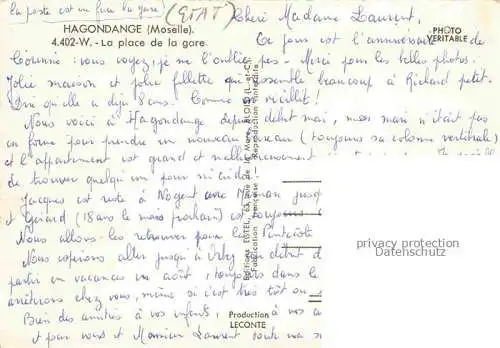 la poste est en face la gare
(ETAT)
Chère Madame Laurent,
HAGONDANGE (Moselle).
4.402-W. - La place de la gare.
PHOTO
VERITABLE
Ce jour est l'anniversaire de
Corinne : vous voyez, je ne l'oublie pas - Merci pour les belles photos.
Jolie maison et jolie fillette qui ressemble beaucoup à Richard petit.
Dire qu'elle a déjà 8 ans. Comme on vieillit !
Nous voici à Hagondange depuis début mai, mon mari n'était pas
en forme pour prendre un nouveau bureau (toujours sa colonne vertébrale)
et l'appartement est grand et malheureusement
de trouver quelqu'un pour m'aider.
Jacques est resté à Nogent avec Maman
et Gérard (18 ans le mois prochain) est toujours
Nous allons les retrouver pour la Pentecôte
Nous espérons aller jusqu'à
partir en vacances en août, toujours dans le
arrêterons chez vous, même si c'est très tôt ou
Bien des amitiés à vos enfants, à vos
et pour vous et Monsieur Laurent
Editions ESTEL, 63, rue de la Mare, BLOIS (L.-et-C.)
Fabrication Française - Reproduction interdite
Production
LECONTE
privacy protection
Datenschutz